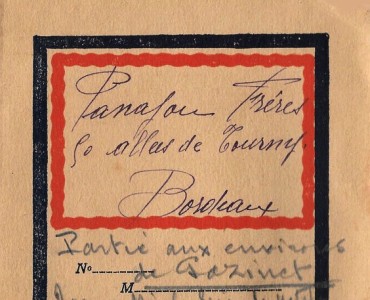 Panajou Frères
50 allées de Tourny
Bordeaux
Partie aux environs
No de Gazinet
M